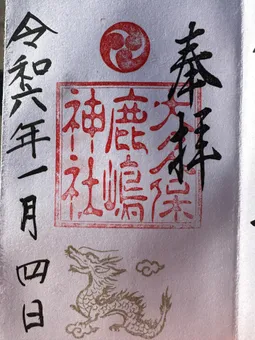 奉拝
大久保
鹿嶋
神社
令和六年一月四日